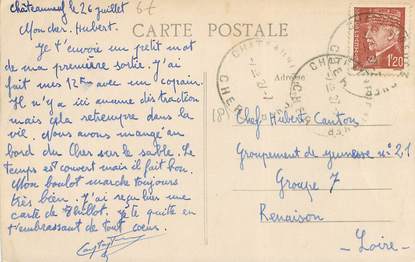 Châteauneuf le 26 juillet
6f
Mon cher Hubert.
CARTE POSTALE
Je t'envoie un petit mot
de ma première sortie. J'ai
fait mes 12 Km avec un copain.
Il n'y a ici aucune distraction
mais cela retrempe dans la
vie. Nous avons mangé au
bord du Cher sur le sable. Le
temps est couvert mais il fait bon.
Mon boulot marche toujours
très bien. J'ai reçu hier une
carte de Thillot. Je te quitte en
t'embrassant de tout cœur.
Adresse
CHER
CHER
1F20
18
Chef Hubert Cantou
Groupement de jeunesse n° 21
Groupe 7
Renaison
Loire